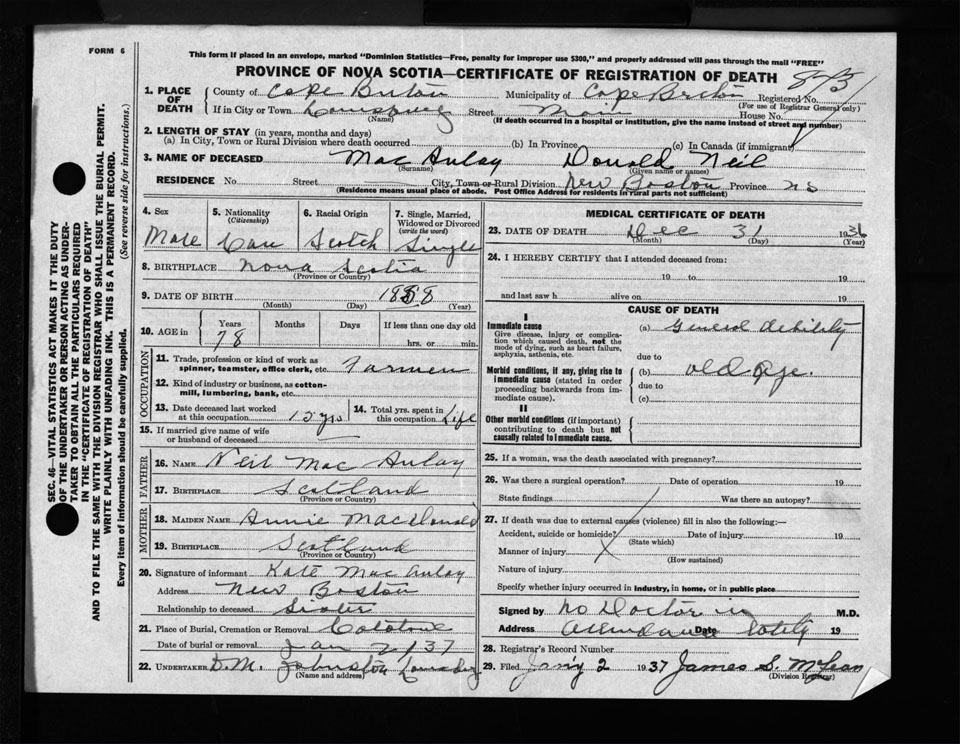 FORM 6
This form if placed in an envelope, marked "Dominion Statistics—Free, penalty for improper use $300," and properly addressed will pass through the mail "FREE"
PROVINCE OF NOVA SCOTIA—CERTIFICATE OF REGISTRATION OF DEATH
1. PLACE OF DEATH
County of Cape Breton Municipality of Cape Breton Registered No.
(For use of Registrar General only)
If in City or Town Louisburg Street Main House No.
(Name) (If death occurred in a hospital or institution, give the name instead of street and number)
2. LENGTH OF STAY (in years, months and days)
(a) In City, Town or Rural Division where death occurred (b) In Province (c) In Canada (if immigrant)
3. NAME OF DECEASED Mac Aulay Donald Neil
(Surname) (Given name or names)
RESIDENCE No. Street City, Town or Rural Division New Boston Province NS
(Residence means usual place of abode. Post Office Address for residents in rural parts not sufficient)
4. Sex 5. Nationality (Citizenship) 6. Racial Origin 7. Single, Married, Widowed or Divorced (write the word)
Male Can Scotch Single
8. BIRTHPLACE Nova Scotia
(Province or Country)
9. DATE OF BIRTH 1858
(Month) (Day) (Year)
10. AGE in Years Months Days If less than one day old
78 hrs. or min.
OCCUPATION
11. Trade, profession or kind of work as spinner, teamster, office clerk, etc. Farmer
12. Kind of industry or business, as cotton-mill, lumbering, bank, etc.
13. Date deceased last worked at this occupation 15 yrs 14. Total yrs. spent in this occupation Life
15. If married give name of wife or husband of deceased
FATHER
16. NAME Neil Mac Aulay
17. BIRTHPLACE Scotland
(Province or Country)
MOTHER
18. MAIDEN NAME Annie MacDonald
19. BIRTHPLACE Scotland
(Province or Country)
20. Signature of informant Kate Mac Aulay
Address New Boston
Relationship to deceased Sister
21. Place of Burial, Cremation or Removal Catalone
Date of burial or removal Jan 2/37
22. UNDERTAKER D.M. Johnston Louisburg
(Name and address)
MEDICAL CERTIFICATE OF DEATH
23. DATE OF DEATH Dec 31 1936
(Month) (Day) (Year)
24. I HEREBY CERTIFY that I attended deceased from:
19 to 19
and last saw h alive on 19
CAUSE OF DEATH
I
Immediate cause
Give disease, injury or complication which caused death, not the mode of dying, such as heart failure, asphyxia, asthenia, etc.
(a) General debility
due to
Morbid conditions, if any, giving rise to immediate cause (stated in order proceeding backwards from immediate cause).
(b) old age.
due to
(c)
II
Other morbid conditions (if important) contributing to death but not causally related to immediate cause.
25. If a woman, was the death associated with pregnancy?
26. Was there a surgical operation? Date of operation 19
State findings Was there an autopsy?
27. If death was due to external causes (violence) fill in also the following:—
Accident, suicide or homicide? Date of injury 19
(State which)
Manner of injury
(How sustained)
Nature of injury
Specify whether injury occurred in industry, in home, or in public place
Signed by No Doctor in M.D.
Address attendance Date 19
28. Registrar's Record Number
29. Filed Jan'y 2 1937 James S. McLean
(Division Registrar)
SEC. 46—VITAL STATISTICS ACT MAKES IT THE DUTY
OF THE UNDERTAKER OR PERSON ACTING AS UNDER-
TAKER TO OBTAIN ALL THE PARTICULARS REQUIRED
IN THE "CERTIFICATE OF REGISTRATION OF DEATH"
AND TO FILE THE SAME WITH THE DIVISION REGISTRAR WHO SHALL ISSUE THE BURIAL PERMIT.
WRITE PLAINLY WITH UNFADING INK. THIS IS A PERMANENT RECORD.
Every item of information should be carefully supplied. (See reverse side for instructions.)